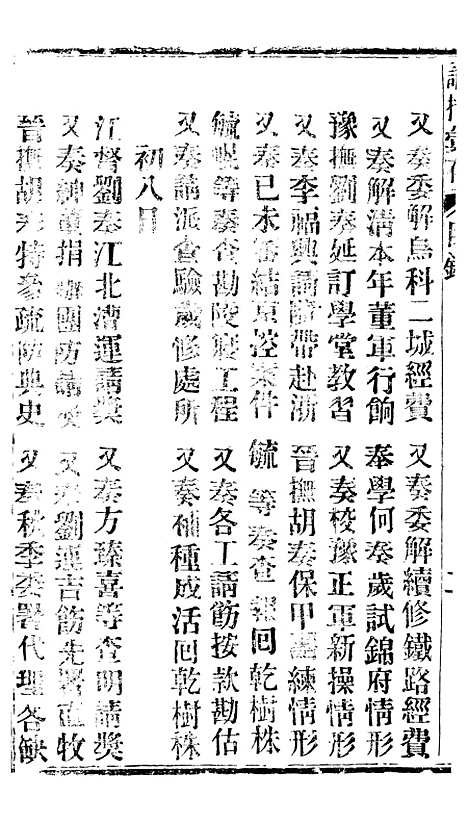 諭摺彙存 目錄
又奏委解烏科二城經費
又奏委解續修鐵路經費
又奏解清本年董軍行餉
奉學何奏歲試錦府情形
豫撫劉奏延訂學堂教習
又奏校豫正軍新操情形
又奏李福興請飭帶赴浙
晉撫胡奏保甲團練情形
又奏已未審結京控案件
毓 等奏查報回乾樹株
毓崐等奏查勘陵寢工程
又奏各工請飭按款勘估
又奏請派會驗歲修處所
又奏補種成活回乾樹株
初八日
江督劉奏江北漕運請獎
又奏方臻喜等查明請獎
又奏紳董捐辦團防請獎
又奏劉運吉飭先署直牧
晉撫胡奏特參疏防典史
又奏秋季委署代理各缺